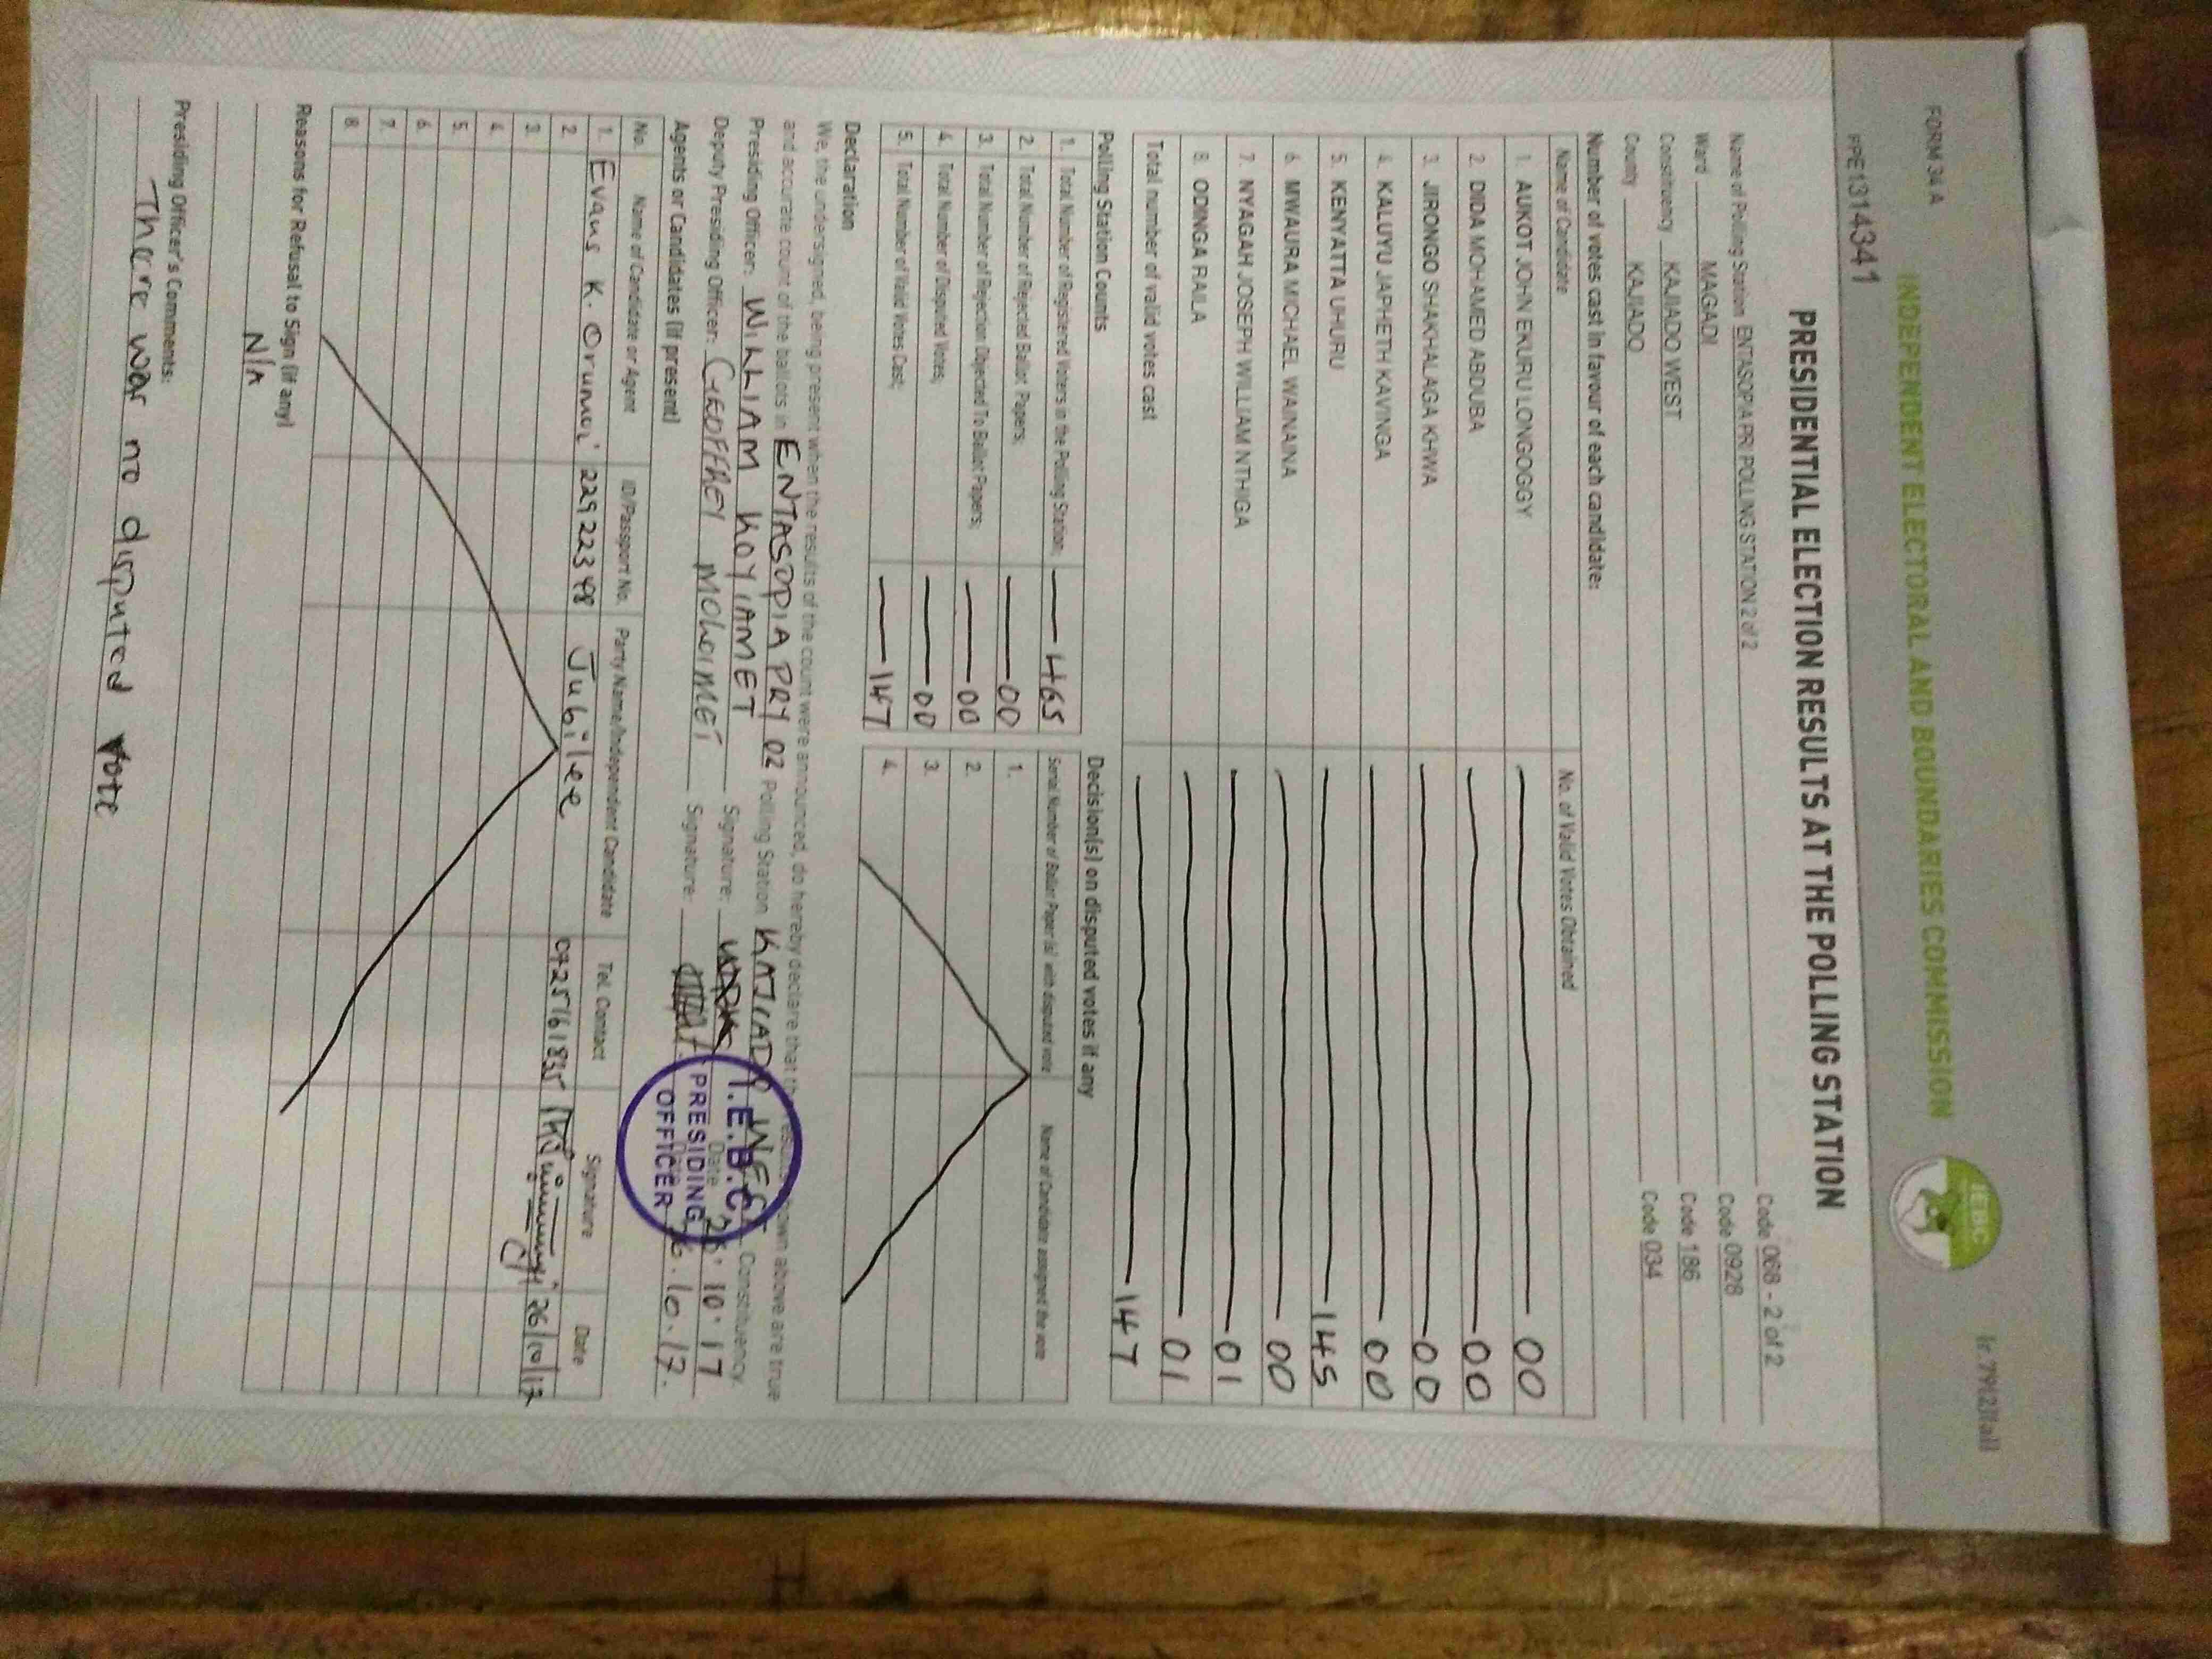 FORM 34 A
INDEPENDENT ELECTORAL AND BOUNDARIES COMMISSION
IEBC
PPE1314341
PRESIDENTIAL ELECTION RESULTS AT THE POLLING STATION
Name of Polling Station ENTASOPIA PRI POLLING STATION 2 of 2 Code 068 - 2 of 2
Ward MAGADI Code 0928
Constituency KAJIADO WEST Code 186
County KAJIADO Code 034
Number of votes cast in favour of each candidate:
Name of Candidate No. of Valid Votes Obtained
1. AUKOT JOHN EKURU LONGOGGY 00
2. DIDA MOHAMED ABDUBA 00
3. JIRONGO SHAKHALAGA KHWA 00
4. KALUYU JAPHETH KAVINGA 00
5. KENYATTA UHURU 145
6. MWAURA MICHAEL WAINAINA 00
7. NYAGAH JOSEPH WILLIAM NTHIGA 01
8. ODINGA RAILA 01
Total number of valid votes cast 147
Polling Station Counts
1. Total Number of Registered Voters in the Polling Station; 465
2. Total Number of Rejected Ballot Papers; 00
3. Total Number of Rejection Objected To Ballot Papers; 00
4. Total Number of Disputed Votes; 00
5. Total Number of Valid Votes Cast; 147
Decision(s) on disputed votes if any
Serial Number of Ballot Paper (s) with disputed vote Name of Candidate assigned the vote
1.
2.
3.
4.
Declaration
We, the undersigned, being present when the results of the count were announced, do hereby declare that the results shown above are true
and accurate count of the ballots in ENTASOPIA PRY 02 Polling Station KAJIADO WEST Constituency.
Presiding Officer: WILLIAM KOYIAMET Signature: Date 26.10.17
Deputy Presiding Officer: GEOFFREY Signature: 26.10.17.
I.E.B.C.
PRESIDING
OFFICER
Agents or Candidates (if present)
No. Name of Candidate or Agent ID/Passport No. Party Name/Independent Candidate Tel. Contact Signature Date
1. Evans K. 22922348 Jubilee 26/10/17
2.
3.
4.
5.
6.
7.
8.
Reasons for Refusal to Sign (if any)
N/A
Presiding Officer's Comments:
There was no disputed vote